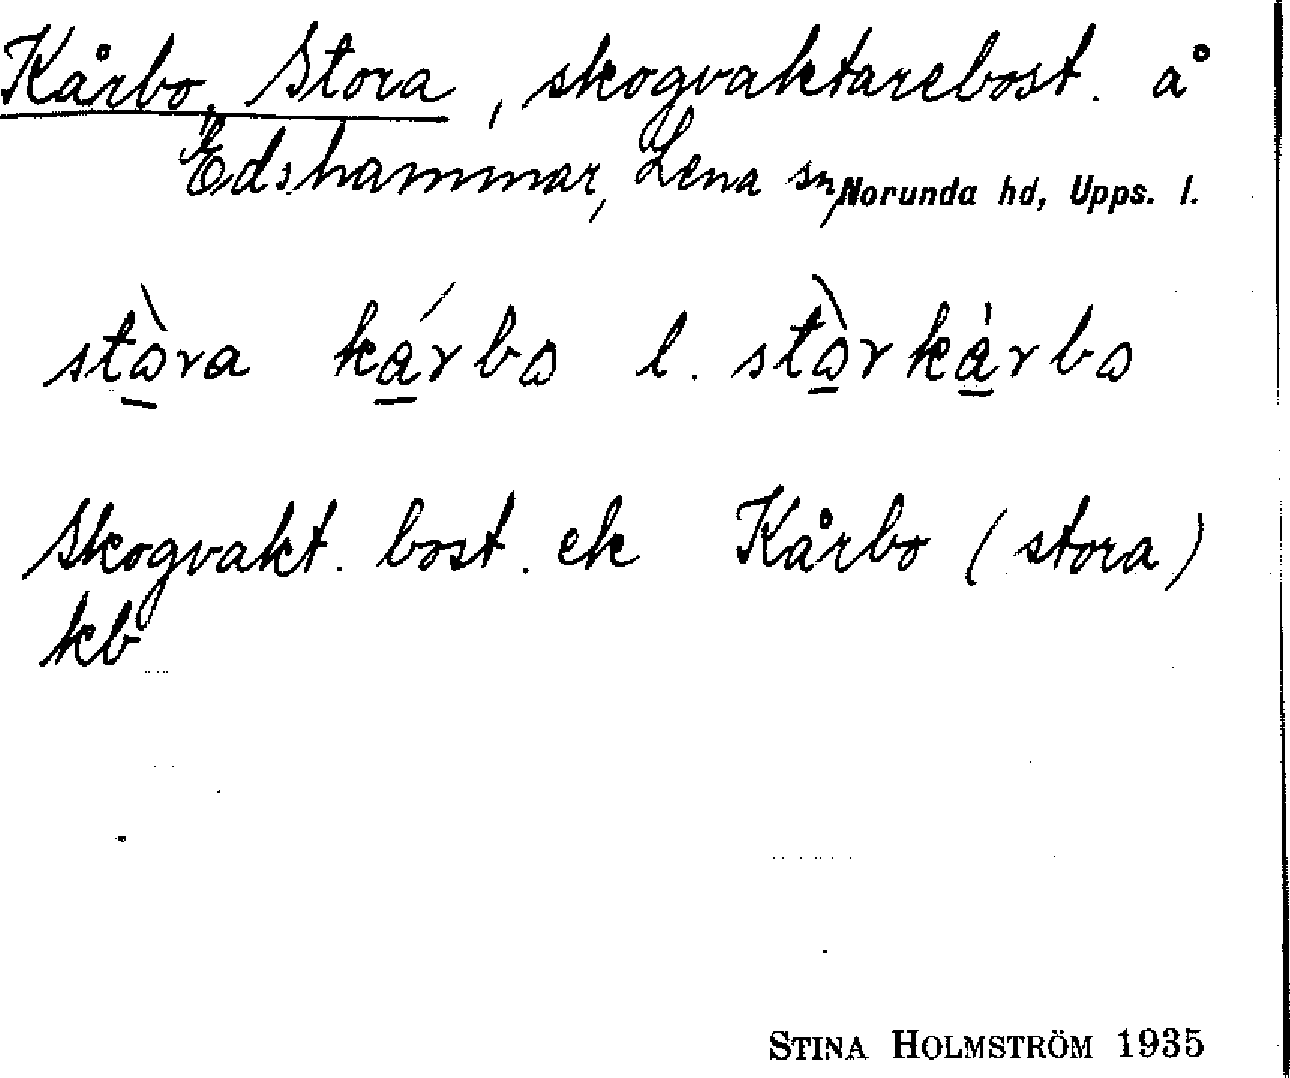 Kårbo, Stora, skogvaktarebost. å
Edshammar, Lena sn, Norunda hd, Upps. l.
stòra kárbo l. stòrkàrbo
Skogvakt. bost. ek Kårbo (stora)
kb
STINA HOLMSTRÖM 1935